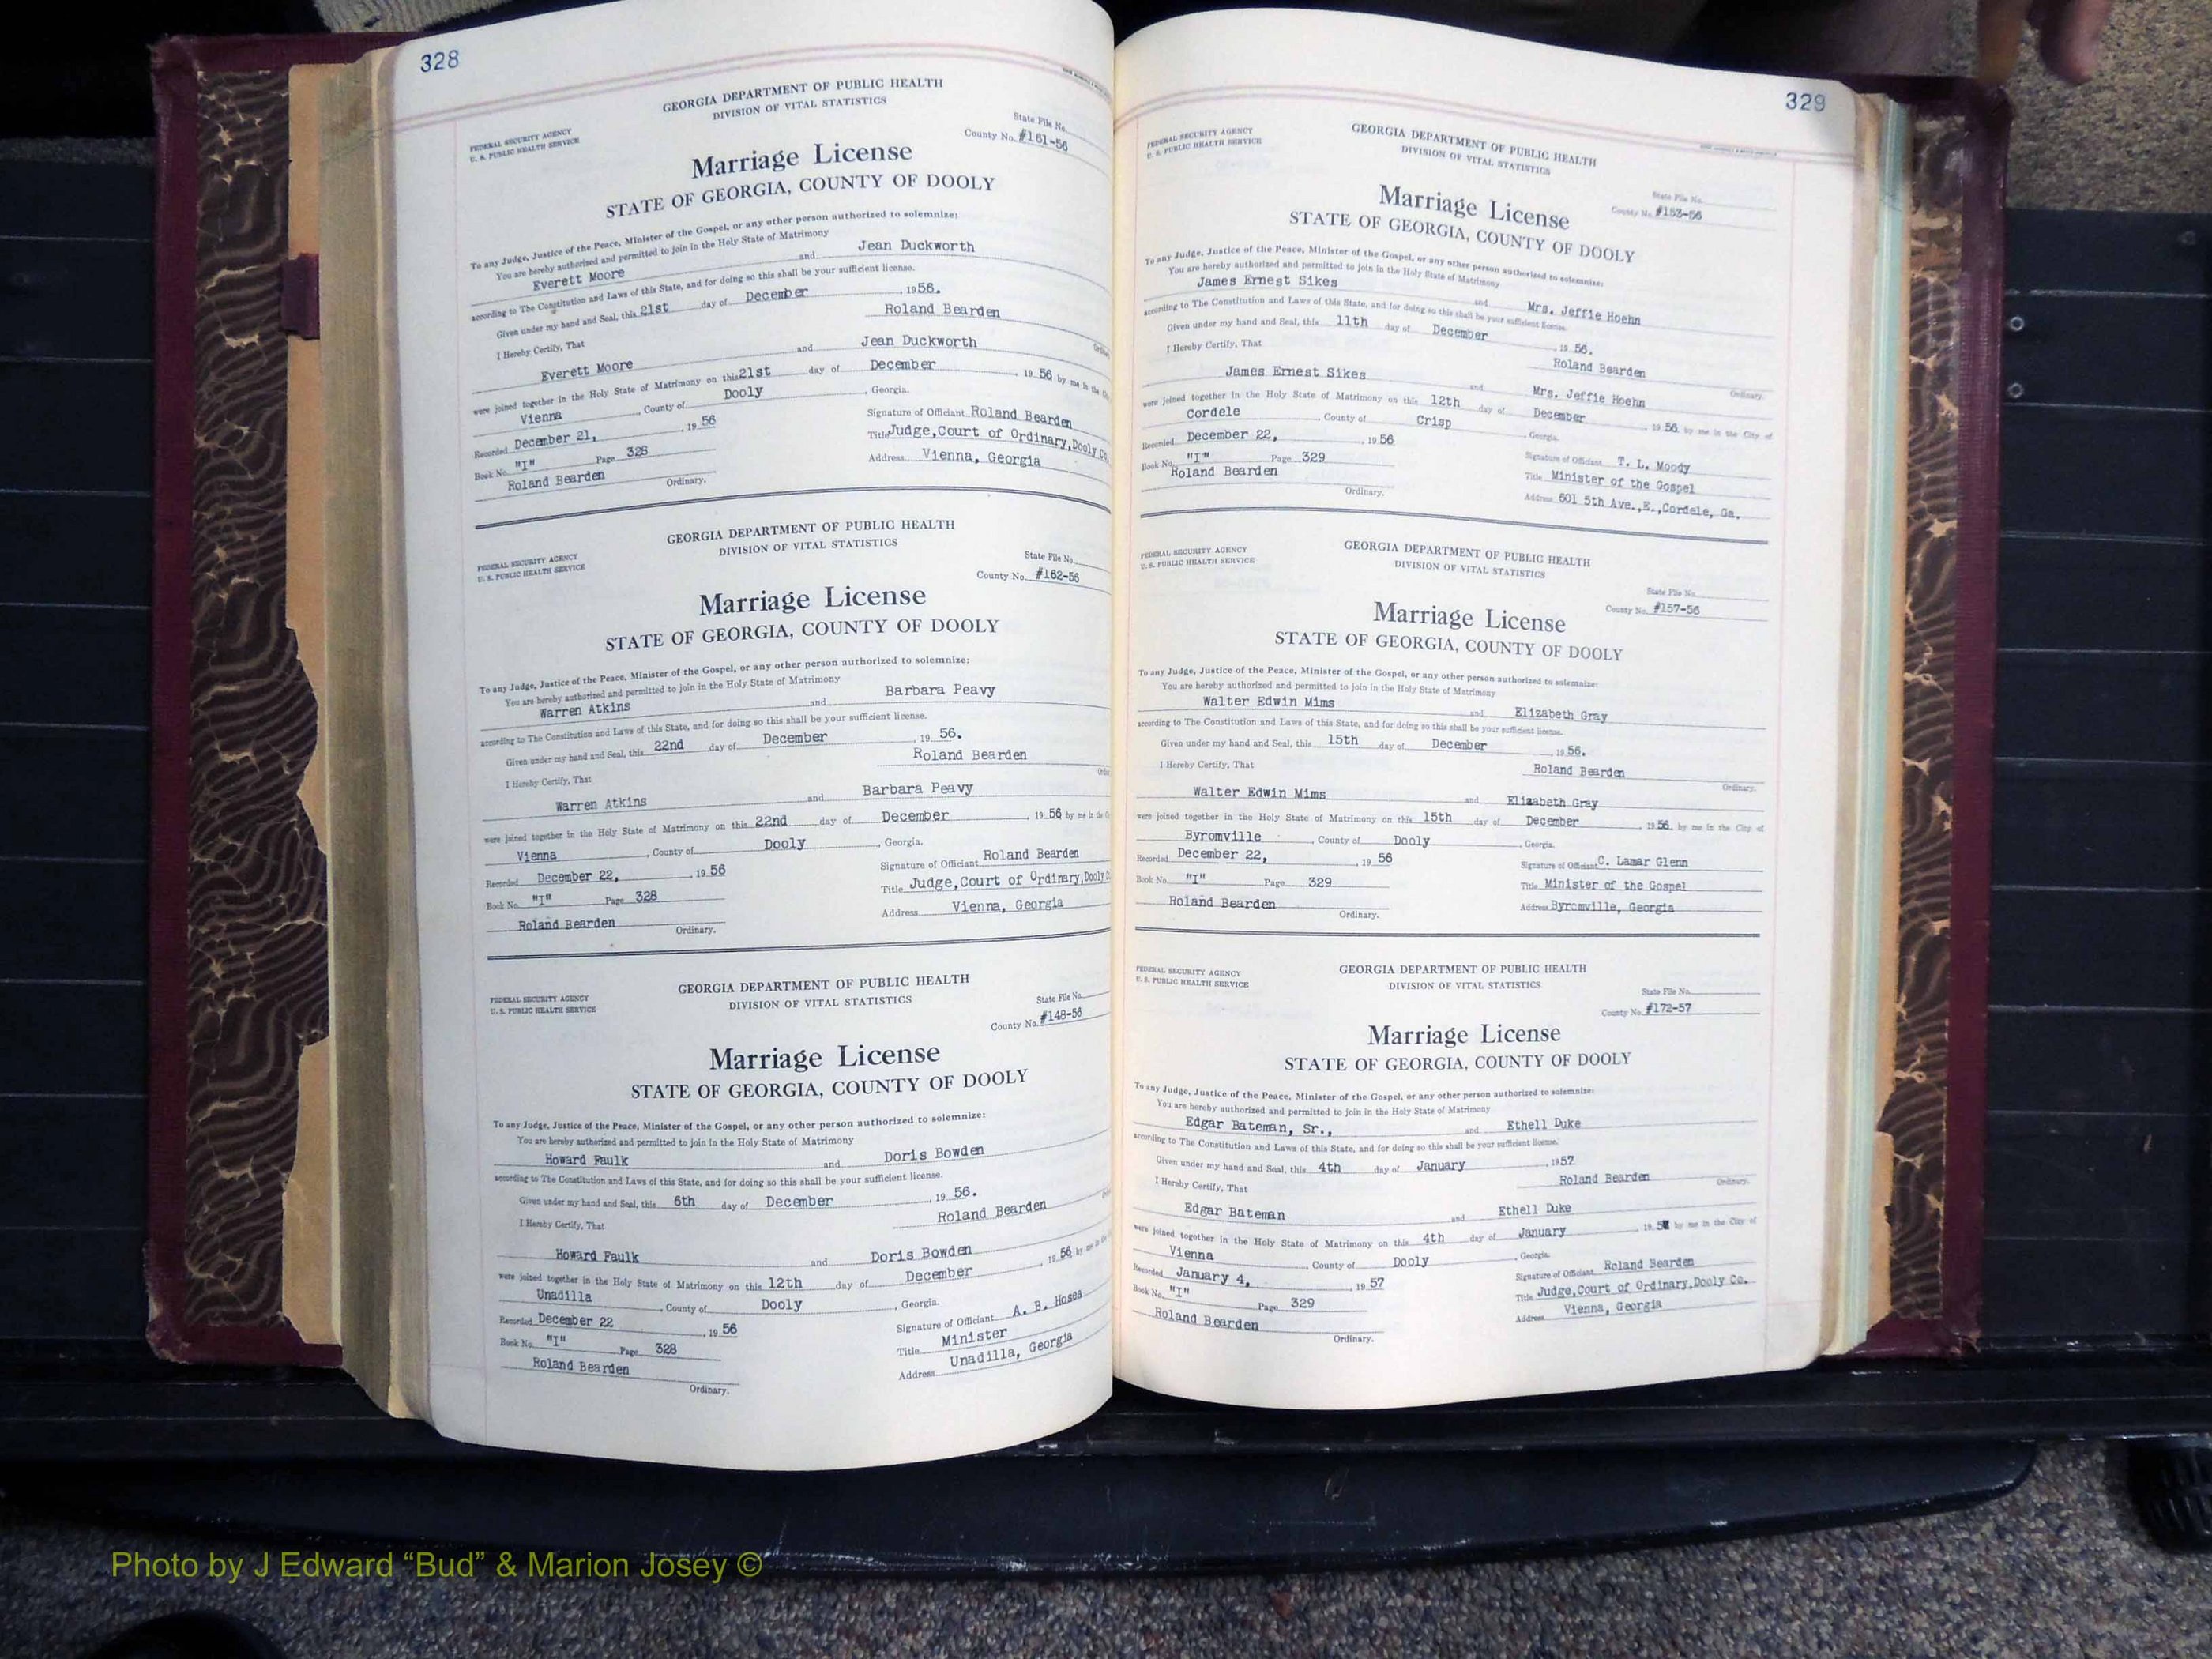 328
GEORGIA DEPARTMENT OF PUBLIC HEALTH
DIVISION OF VITAL STATISTICS
FEDERAL SECURITY AGENCY
U. S. PUBLIC HEALTH SERVICE
State File No.
County No. #161-56
Marriage License
STATE OF GEORGIA, COUNTY OF DOOLY
To any Judge, Justice of the Peace, Minister of the Gospel, or any other person authorized to solemnize:
You are hereby authorized and permitted to join in the Holy State of Matrimony
Everett Moore and Jean Duckworth
according to The Constitution and Laws of this State, and for doing so this shall be your sufficient license.
Given under my hand and Seal, this 21st day of December, 1956.
Roland Bearden
I Hereby Certify, That
Everett Moore and Jean Duckworth
were joined together in the Holy State of Matrimony on this 21st day of December 1956 by me in the
Vienna, County of Dooly, Georgia.
Recorded December 21, 1956
Signature of Officiant Roland Bearden
Book No. "I" Page 328
Title Judge,Court of Ordinary,Dooly Co.
Roland Bearden
Address Vienna, Georgia
Ordinary.
GEORGIA DEPARTMENT OF PUBLIC HEALTH
DIVISION OF VITAL STATISTICS
FEDERAL SECURITY AGENCY
U. S. PUBLIC HEALTH SERVICE
State File No.
County No. #162-56
Marriage License
STATE OF GEORGIA, COUNTY OF DOOLY
To any Judge, Justice of the Peace, Minister of the Gospel, or any other person authorized to solemnize:
You are hereby authorized and permitted to join in the Holy State of Matrimony
Warren Atkins and Barbara Peavy
according to The Constitution and Laws of this State, and for doing so this shall be your sufficient license.
Given under my hand and Seal, this 22nd day of December, 1956.
Roland Bearden
I Hereby Certify, That
Warren Atkins and Barbara Peavy
were joined together in the Holy State of Matrimony on this 22nd day of December, 1956 by me in the
Vienna, County of Dooly, Georgia.
Recorded December 22, 1956
Signature of Officiant Roland Bearden
Book No. "I" Page 328
Title Judge,Court of Ordinary,Dooly
Roland Bearden
Address Vienna, Georgia
Ordinary.
GEORGIA DEPARTMENT OF PUBLIC HEALTH
DIVISION OF VITAL STATISTICS
FEDERAL SECURITY AGENCY
U. S. PUBLIC HEALTH SERVICE
State File No.
County No. #148-56
Marriage License
STATE OF GEORGIA, COUNTY OF DOOLY
To any Judge, Justice of the Peace, Minister of the Gospel, or any other person authorized to solemnize:
You are hereby authorized and permitted to join in the Holy State of Matrimony
Howard Faulk and Doris Bowden
according to The Constitution and Laws of this State, and for doing so this shall be your sufficient license.
Given under my hand and Seal, this 6th day of December, 1956.
Roland Bearden
I Hereby Certify, That
Howard Faulk and Doris Bowden
were joined together in the Holy State of Matrimony on this 12th day of December, 1956 by me in the
Unadilla, County of Dooly, Georgia.
Recorded December 22, 1956
Signature of Officiant A. B. Hosea
Book No. "I" Page 328
Title Minister
Roland Bearden
Address Unadilla, Georgia
Ordinary.
329
GEORGIA DEPARTMENT OF PUBLIC HEALTH
DIVISION OF VITAL STATISTICS
FEDERAL SECURITY AGENCY
U. S. PUBLIC HEALTH SERVICE
State File No.
County No. #153-56
Marriage License
STATE OF GEORGIA, COUNTY OF DOOLY
To any Judge, Justice of the Peace, Minister of the Gospel, or any other person authorized to solemnize:
You are hereby authorized and permitted to join in the Holy State of Matrimony
James Ernest Sikes and Mrs. Jeffie Hoehn
according to The Constitution and Laws of this State, and for doing so this shall be your sufficient license.
Given under my hand and Seal, this 11th day of December, 1956.
Roland Bearden
Ordinary.
I Hereby Certify, That
James Ernest Sikes and Mrs. Jeffie Hoehn
were joined together in the Holy State of Matrimony on this 12th day of December, 1956 by me in the City of
Cordele, County of Crisp, Georgia.
Recorded December 22, 1956
Signature of Officiant T. L. Moody
Book No. "I" Page 329
Title Minister of the Gospel
Roland Bearden
Address 601 5th Ave.,E.,Cordele, Ga.
Ordinary.
GEORGIA DEPARTMENT OF PUBLIC HEALTH
DIVISION OF VITAL STATISTICS
FEDERAL SECURITY AGENCY
U. S. PUBLIC HEALTH SERVICE
State File No.
County No. #157-56
Marriage License
STATE OF GEORGIA, COUNTY OF DOOLY
To any Judge, Justice of the Peace, Minister of the Gospel, or any other person authorized to solemnize:
You are hereby authorized and permitted to join in the Holy State of Matrimony
Walter Edwin Mims and Elizabeth Gray
according to The Constitution and Laws of this State, and for doing so this shall be your sufficient license.
Given under my hand and Seal, this 15th day of December, 1956.
Roland Bearden
Ordinary.
I Hereby Certify, That
Walter Edwin Mims and Elizabeth Gray
were joined together in the Holy State of Matrimony on this 15th day of December, 1956, by me in the City of
Byromville, County of Dooly, Georgia.
Recorded December 22, 1956
Signature of Officiant C. Lamar Glenn
Book No. "I" Page 329
Title Minister of the Gospel
Roland Bearden
Address Byromville, Georgia
Ordinary.
GEORGIA DEPARTMENT OF PUBLIC HEALTH
DIVISION OF VITAL STATISTICS
FEDERAL SECURITY AGENCY
U. S. PUBLIC HEALTH SERVICE
State File No.
County No. #172-57
Marriage License
STATE OF GEORGIA, COUNTY OF DOOLY
To any Judge, Justice of the Peace, Minister of the Gospel, or any other person authorized to solemnize:
You are hereby authorized and permitted to join in the Holy State of Matrimony
Edgar Bateman, Sr., and Ethell Duke
according to The Constitution and Laws of this State, and for doing so this shall be your sufficient license.
Given under my hand and Seal, this 4th day of January, 1957
Roland Bearden
Ordinary.
I Hereby Certify, That
Edgar Bateman and Ethell Duke
were joined together in the Holy State of Matrimony on this 4th day of January, 1957 by me in the City of
Vienna, County of Dooly, Georgia.
Recorded January 4, 1957
Signature of Officiant Roland Bearden
Book No. "I" Page 329
Title Judge,Court of Ordinary,Dooly Co.
Roland Bearden
Address Vienna, Georgia
Ordinary.
Photo by J Edward “Bud” & Marion Josey ©